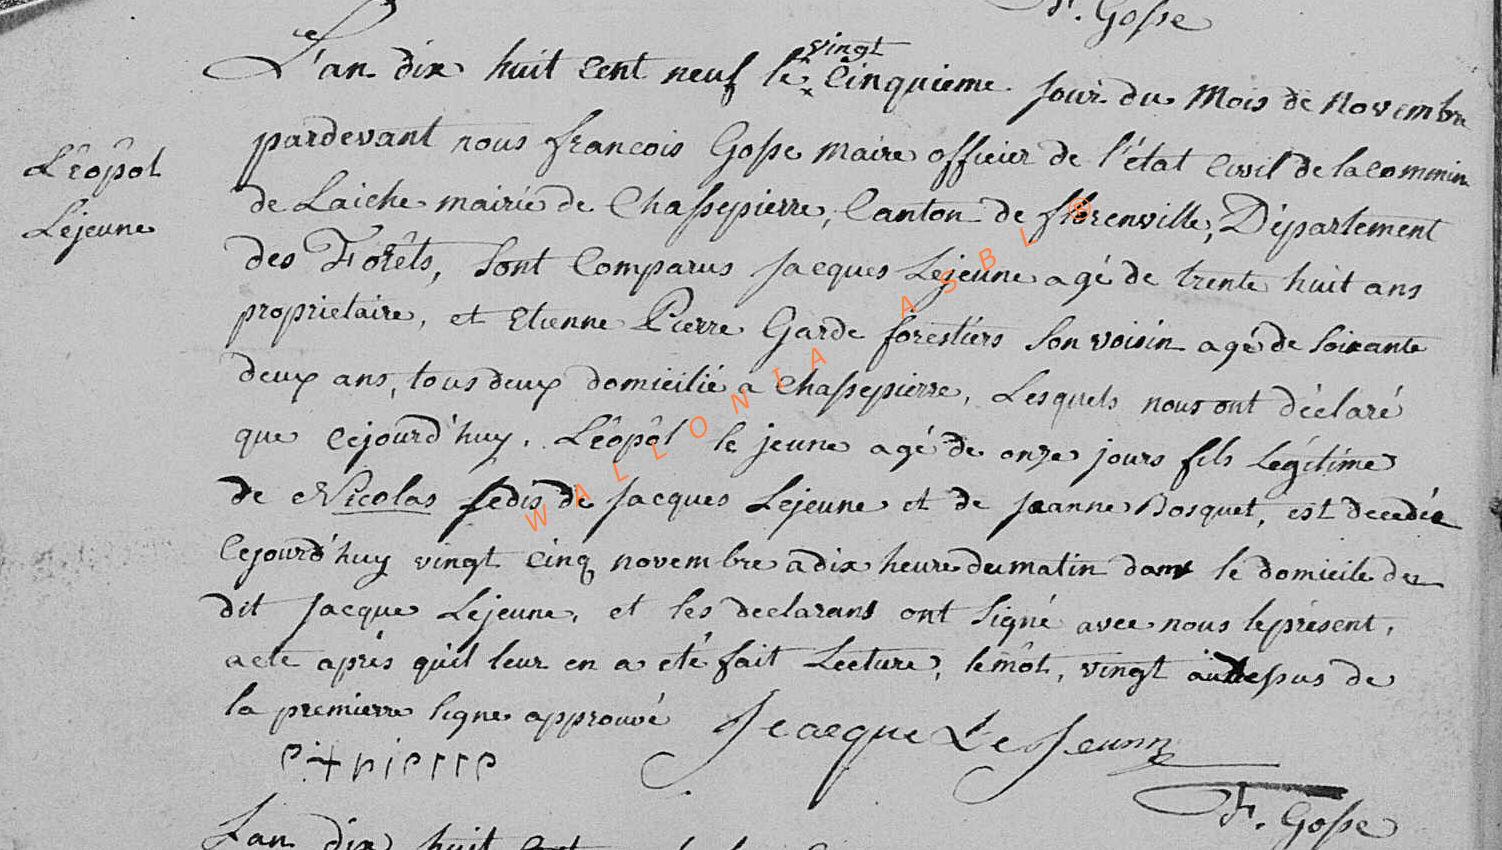 F. Gosse
L'an dix huit cent neuf le vingt cinquieme jour du mois de novembre
pardevant nous francois Gosse maire officier de l'état Civil de la commune
Léôpôl
Lejeune
de Laiche mairie de Chassepierre, Canton de florenville, Département
des Forêts, sont Comparus jacques Lejeune agé de trente huit ans
proprietaire, et Etienne Pierre Garde forestiers son voisin agé de soixante
deux ans, tous deux domicilié a chassepierre, Lesquels nous ont déclaré
que cejourd'huy. Léôpôl le jeune agé de onze jours fils Légitime
de Nicolas de jacques Lejeune et de jeanne Bosquet, est decedée
Cejourd'huy vingt cinq novembre a dix heure du matin dans le domicile du
dit jacque Lejeune, et les declarans ont signé avec nous le présent,
acte aprés qu'il leur en a eté fait Lecture, le môt, vingt au dessus de
la premierre ligne approuvé
Jeacque Le Jeunne
e+pierre
F. Gosse
L'an dix huit
WALLONIA ASBL ©